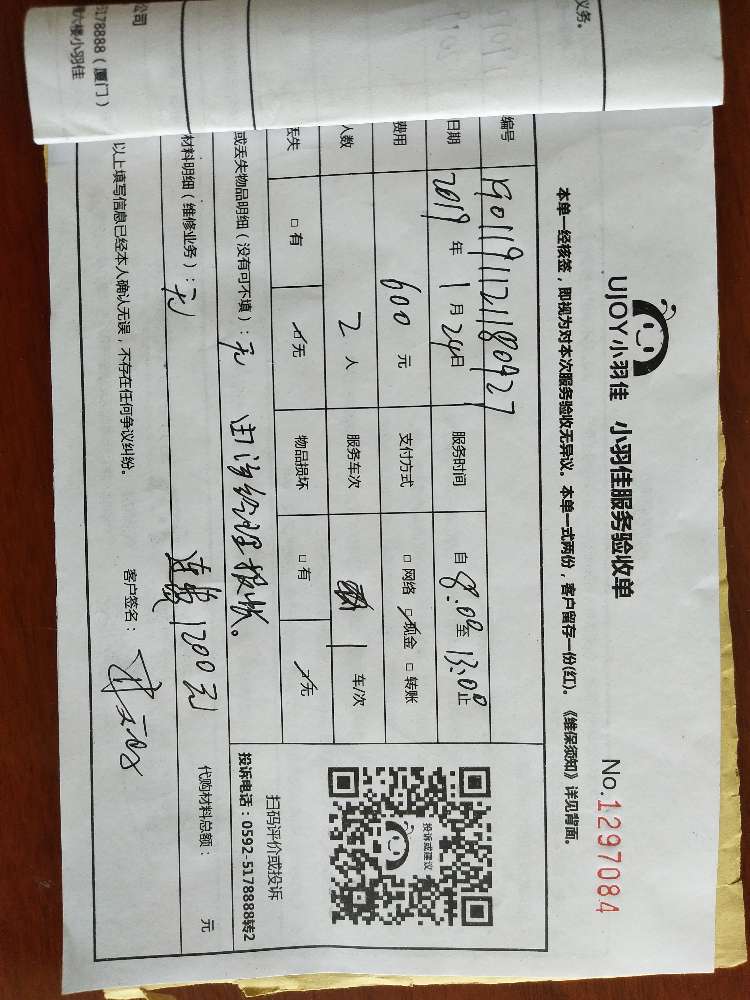 UJOY小羽佳 小羽佳服务验收单
No.1297084
本单一经核签，即视为对本次服务验收无异议。本单一式两份，客户留存一份(红)。《维保须知》详见背面。
编号 190119112180427
日期 2019年1月24日 服务时间 自8:00至13:00止
费用 600元 支付方式 □网络 □现金 □转账
人数 2人 服务车次 1车/次
丢失 □有 无 物品损坏 □有 无
或丢失物品明细（没有可不填）：无
材料明细（维修业务）：无 1200元 代购材料总额： 元
以上填写信息已经本人确认无误，不存在任何争议纠纷。
客户签名：
投诉或建议
扫码评价或投诉
投诉电话：0592-5178888转2
义务。
公司
5178888（厦门）
楼六楼小羽佳